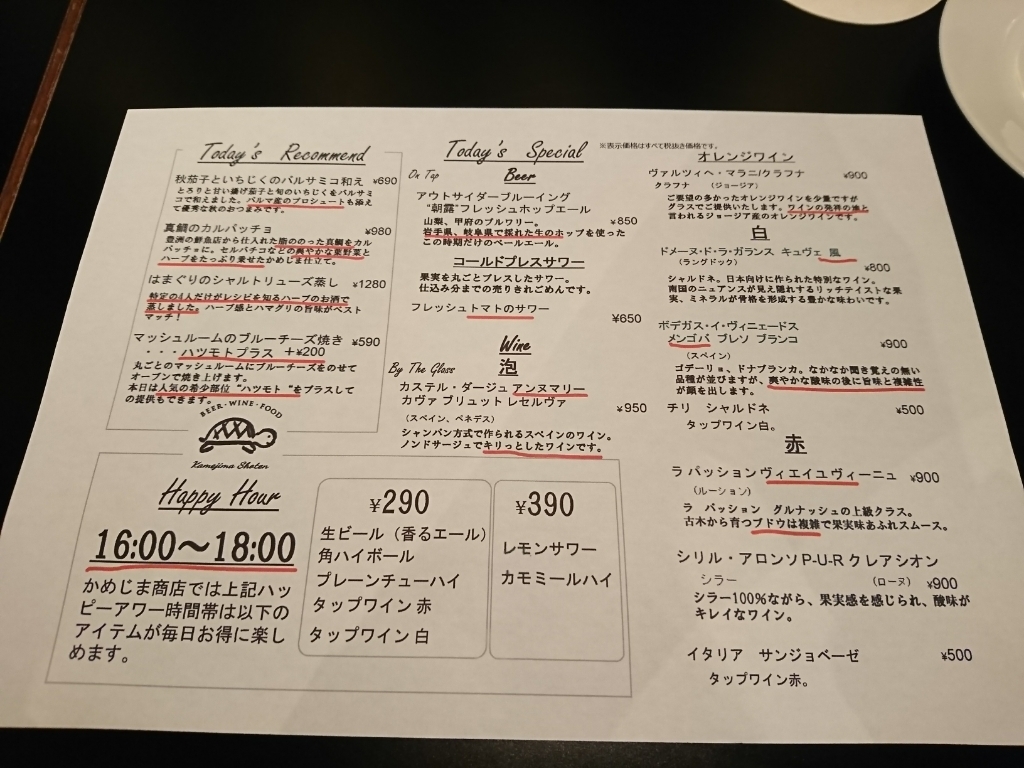 Today's Recommend
秋茄子といちじくのバルサミコ和え ¥690
とろりと甘い揚げ茄子と旬のいちじくをバルサミ
コで和えました。パルマ産のプロシュートも添え
て優秀な秋のおつまみです。
真鯛のカルパッチョ ¥980
豊洲の鮮魚店から仕入れた脂ののった真鯛をカル
パッチョに。セルバチコなどの爽やかな葉野菜と
ハーブをたっぷり乗せたかめじま仕立て。
はまぐりのシャルトリューズ蒸し ¥1280
特定の4人だけがレシピを知るハーブのお酒で
蒸しました。ハーブ感とハマグリの旨味がベスト
マッチ！
マッシュルームのブルーチーズ焼き ¥590
・・・ハツモトプラス ＋¥200
丸ごとのマッシュルームにブルーチーズをのせて
オーブンで焼き上げます。
本日は人気の希少部位 "ハツモト "をプラスして
の提供もできます。
BEER・WINE・FOOD
Kamejima Shoten
Today's Special
※表示価格はすべて税抜き価格です。
On Tap Beer
アウトサイダーブルーイング
"朝露"フレッシュホップエール ¥850
山梨、甲府のブルワリー。
岩手県、岐阜県で採れた生のホップを使った
この時期だけのペールエール。
コールドプレスサワー
果実を丸ごとプレスしたサワー。
仕込み分までの売りきれごめんです。
フレッシュトマトのサワー ¥650
Wine
By The Glass 泡
カステル・ダージュ アンヌマリー
カヴァ ブリュット レセルヴァ ¥950
（スペイン、ペネデス）
シャンパン方式で作られるスペインのワイン。
ノンドサージュでキリっとしたワインです。
オレンジワイン
ヴァルツィヘ・マラニ/クラフナ ¥900
クラフナ （ジョージア）
ご要望の多かったオレンジワインを少量ですが
グラスでご提供いたします。ワインの発祥の地と
言われるジョージア産のオレンジワインです。
白
ドメーヌ・ド・ラ・ガランス キュヴェ 風 ¥800
（ラングドック）
シャルドネ。日本向けに作られた特別なワイン。
南国のニュアンスが見え隠れするリッチテイストな果
実、ミネラルが骨格を形成する豊かな味わいです。
ボデガス・イ・ヴィニェードス
メンゴバ ブレソ ブランコ ¥900
（スペイン）
ゴデーリョ、ドナブランカ。なかなか聞き覚えの無い
品種が並びますが、爽やかな酸味の後に旨味と複雑性
が顔を出します。
チリ シャルドネ ¥500
タップワイン白。
赤
ラ パッション ヴィエイユ ヴィーニュ ¥900
（ルーション）
ラ パッション グルナッシュの上級クラス。
古木から育つブドウは複雑で果実味あふれスムース。
シリル・アロンソ P-U-R クレアシオン
シラー （ローヌ） ¥900
シラー100%ながら、果実感を感じられ、酸味が
キレイなワイン。
イタリア サンジョベーゼ ¥500
タップワイン赤。
Happy Hour
16:00～18:00
かめじま商店では上記ハッ
ピーアワー時間帯は以下の
アイテムが毎日お得に楽し
めます。
¥290
生ビール（香るエール）
角ハイボール
プレーンチューハイ
タップワイン 赤
タップワイン 白
¥390
レモンサワー
カモミールハイ